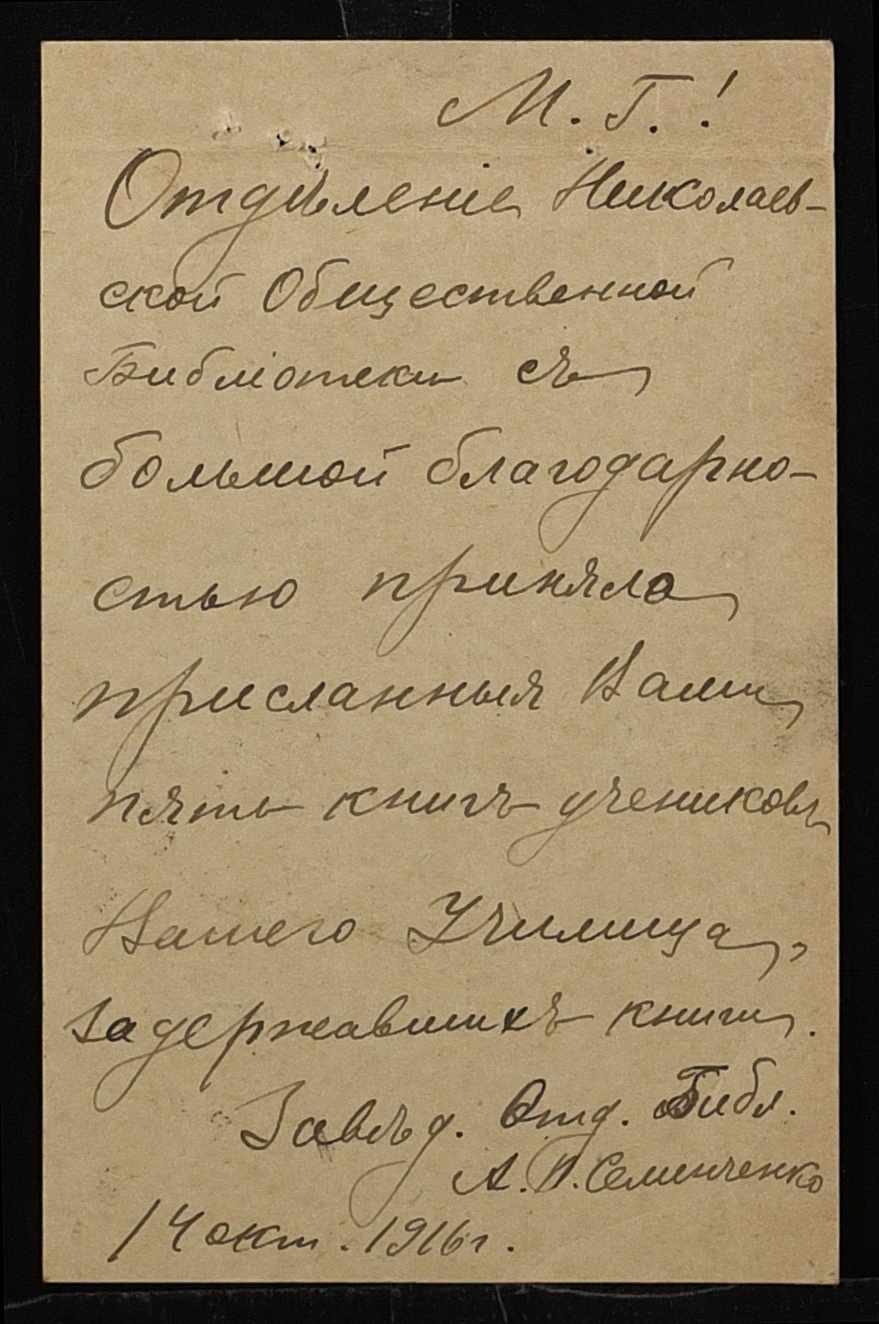 М. Г.!
Отдѣленіе Николаев-
ской Общественной
Библіотеки съ
большой благодарно-
стью приняло
присланныя Вами
пять книгъ учениковъ
Вашего Училища,
задержавшихъ книги.
Завѣд. Отд. Библ.
А. П. Семенченко
14 окт. 1916 г.